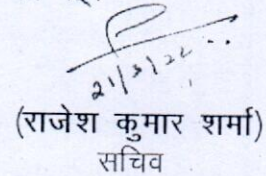 21/3/22
(राजेश कुमार शर्मा)
सचिव